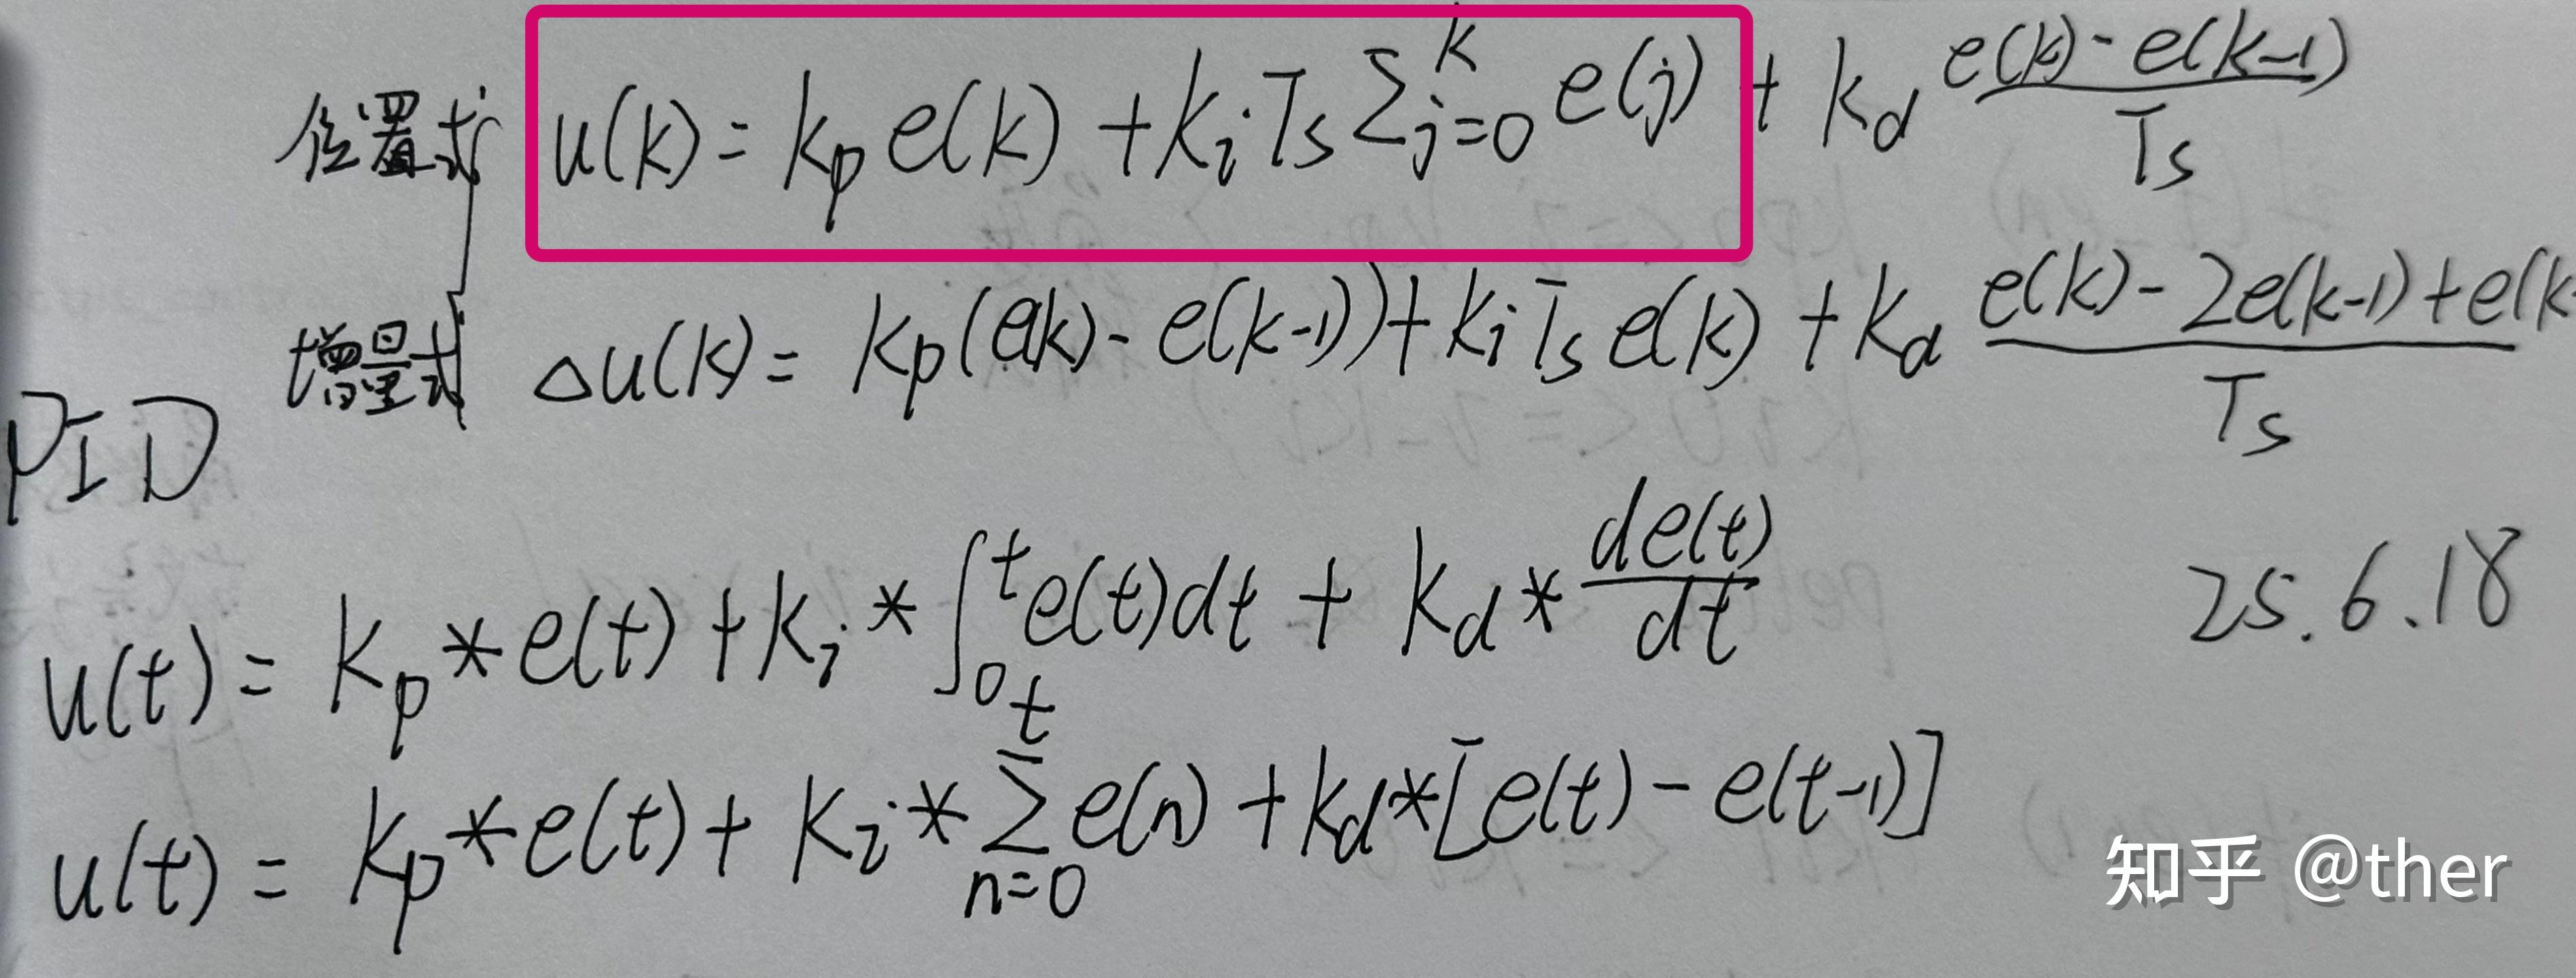 位置式 u(k) = kp e(k) + ki Ts Σ_{j=0}^{k} e(j) + kd (e(k) - e(k-1)) / Ts
增量式 Δu(k) = kp(e(k) - e(k-1)) + ki Ts e(k) + kd (e(k) - 2e(k-1) + e(k / Ts
PID
u(t) = kp * e(t) + ki * ∫_0^t e(t)dt + kd * de(t)/dt
25.6.18
u(t) = kp * e(t) + ki * Σ_{n=0}^{t} e(n) + kd * [e(t) - e(t-1)]
知乎 @ther